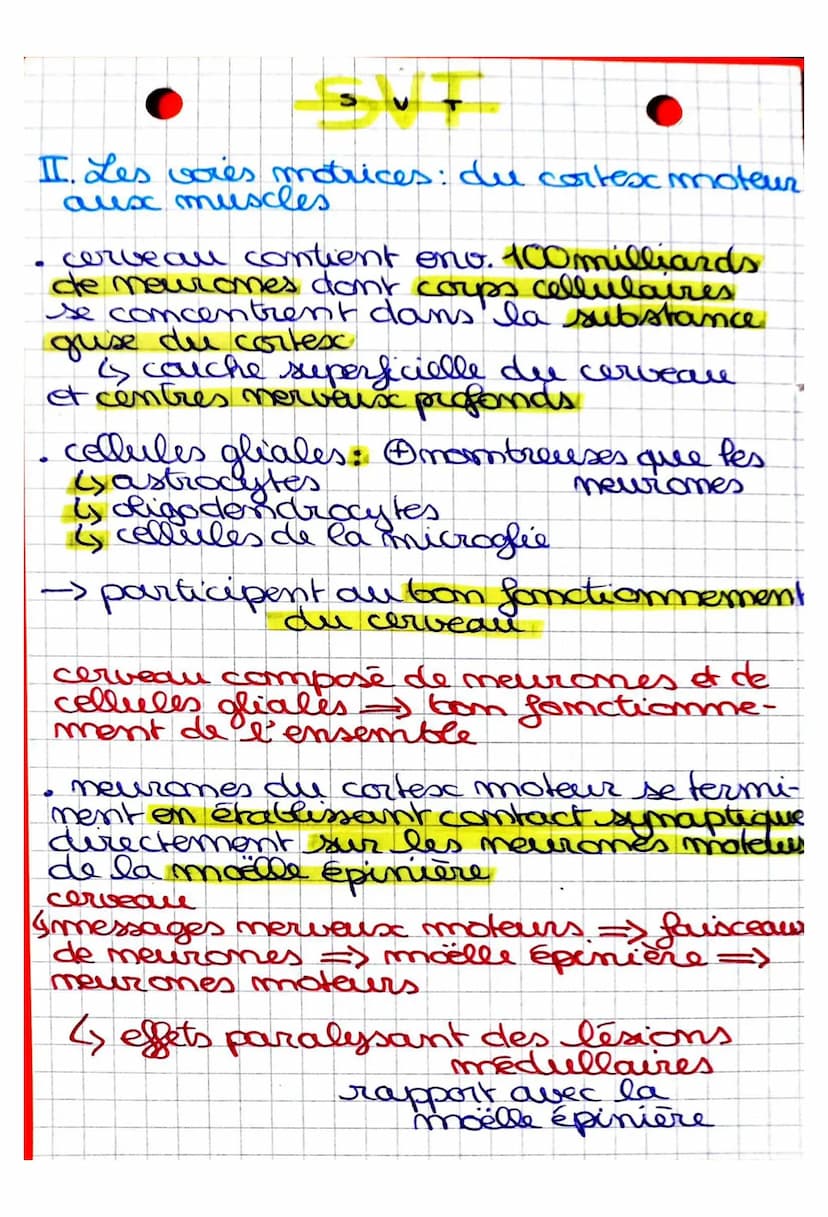 SVT
II. Les voies motrices : du cortex moteur
aux muscles
. cerveau contient env. 100 milliards
de neurones dont corps cellulaires
se concentrent dans la substance
grise du cortex
↳ couche superficielle du cerveau
et centres nerveux profonds
. cellules gliales : ⊕ nombreuses que les
neurones
↳ astrocytes
↳ oligodendrocytes
↳ cellules de la microglie
→ participent au bon fonctionnement
du cerveau
cerveau composé de neurones et de
cellules gliales ⇒ bon fonctionne-
ment de l'ensemble
. neurones du cortex moteur se termi-
nent en établissant contact synaptique
directement sur les neurones moteurs
de la moëlle épinière
cerveau
↳ messages nerveux moteurs ⇒ faisceaux
de neurones ⇒ moëlle épinière ⇒
neurones moteurs
↳ effets paralysant des lésions
médullaires
rapport avec la
moëlle épinière